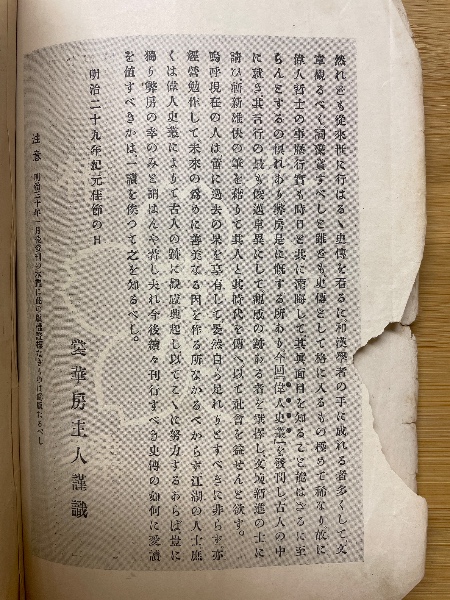 然れども從來世に行はるゝ史傳を看るに和漢學者の手に成れる者多くして文
章觀るべく記事喜すべしと雖も史傳として格に入るもの極めて稀なり故に
偉人賢士の事歷行實も時日と共に湮晦して其眞面目を知ること能はざるに至
らんとするの惧れあり弊房是に慨する所あり今回『偉人史叢』を發刊し古人の中
に就き其言行の最も俊邁卓異にして 者を選擇し文壇新進の士に
請ひ嶄新雄快の筆を揮りて其人と其時代を傳へ以て社會を益せんと欲す。
嗚呼現在の人は啻に過去の果を享有して晏然自ら足れりとすべきに非らず亦
經營勉作して未來の爲りに善美なる因を作る所なかるべからず江湖の人士庶
くは偉人史叢によりて古人の跡に觀感興起し以てこゝに努力するあらば豈に
獨り弊房の幸のみと謂はんや若し夫れ今後續々刊行すべき史傳の如何に愛讀
を値すべきかは一讀を俟つて之を知るべし。
明治二十九年紀元佳節の日
裳華房主人謹識
注意 明治三十年一月